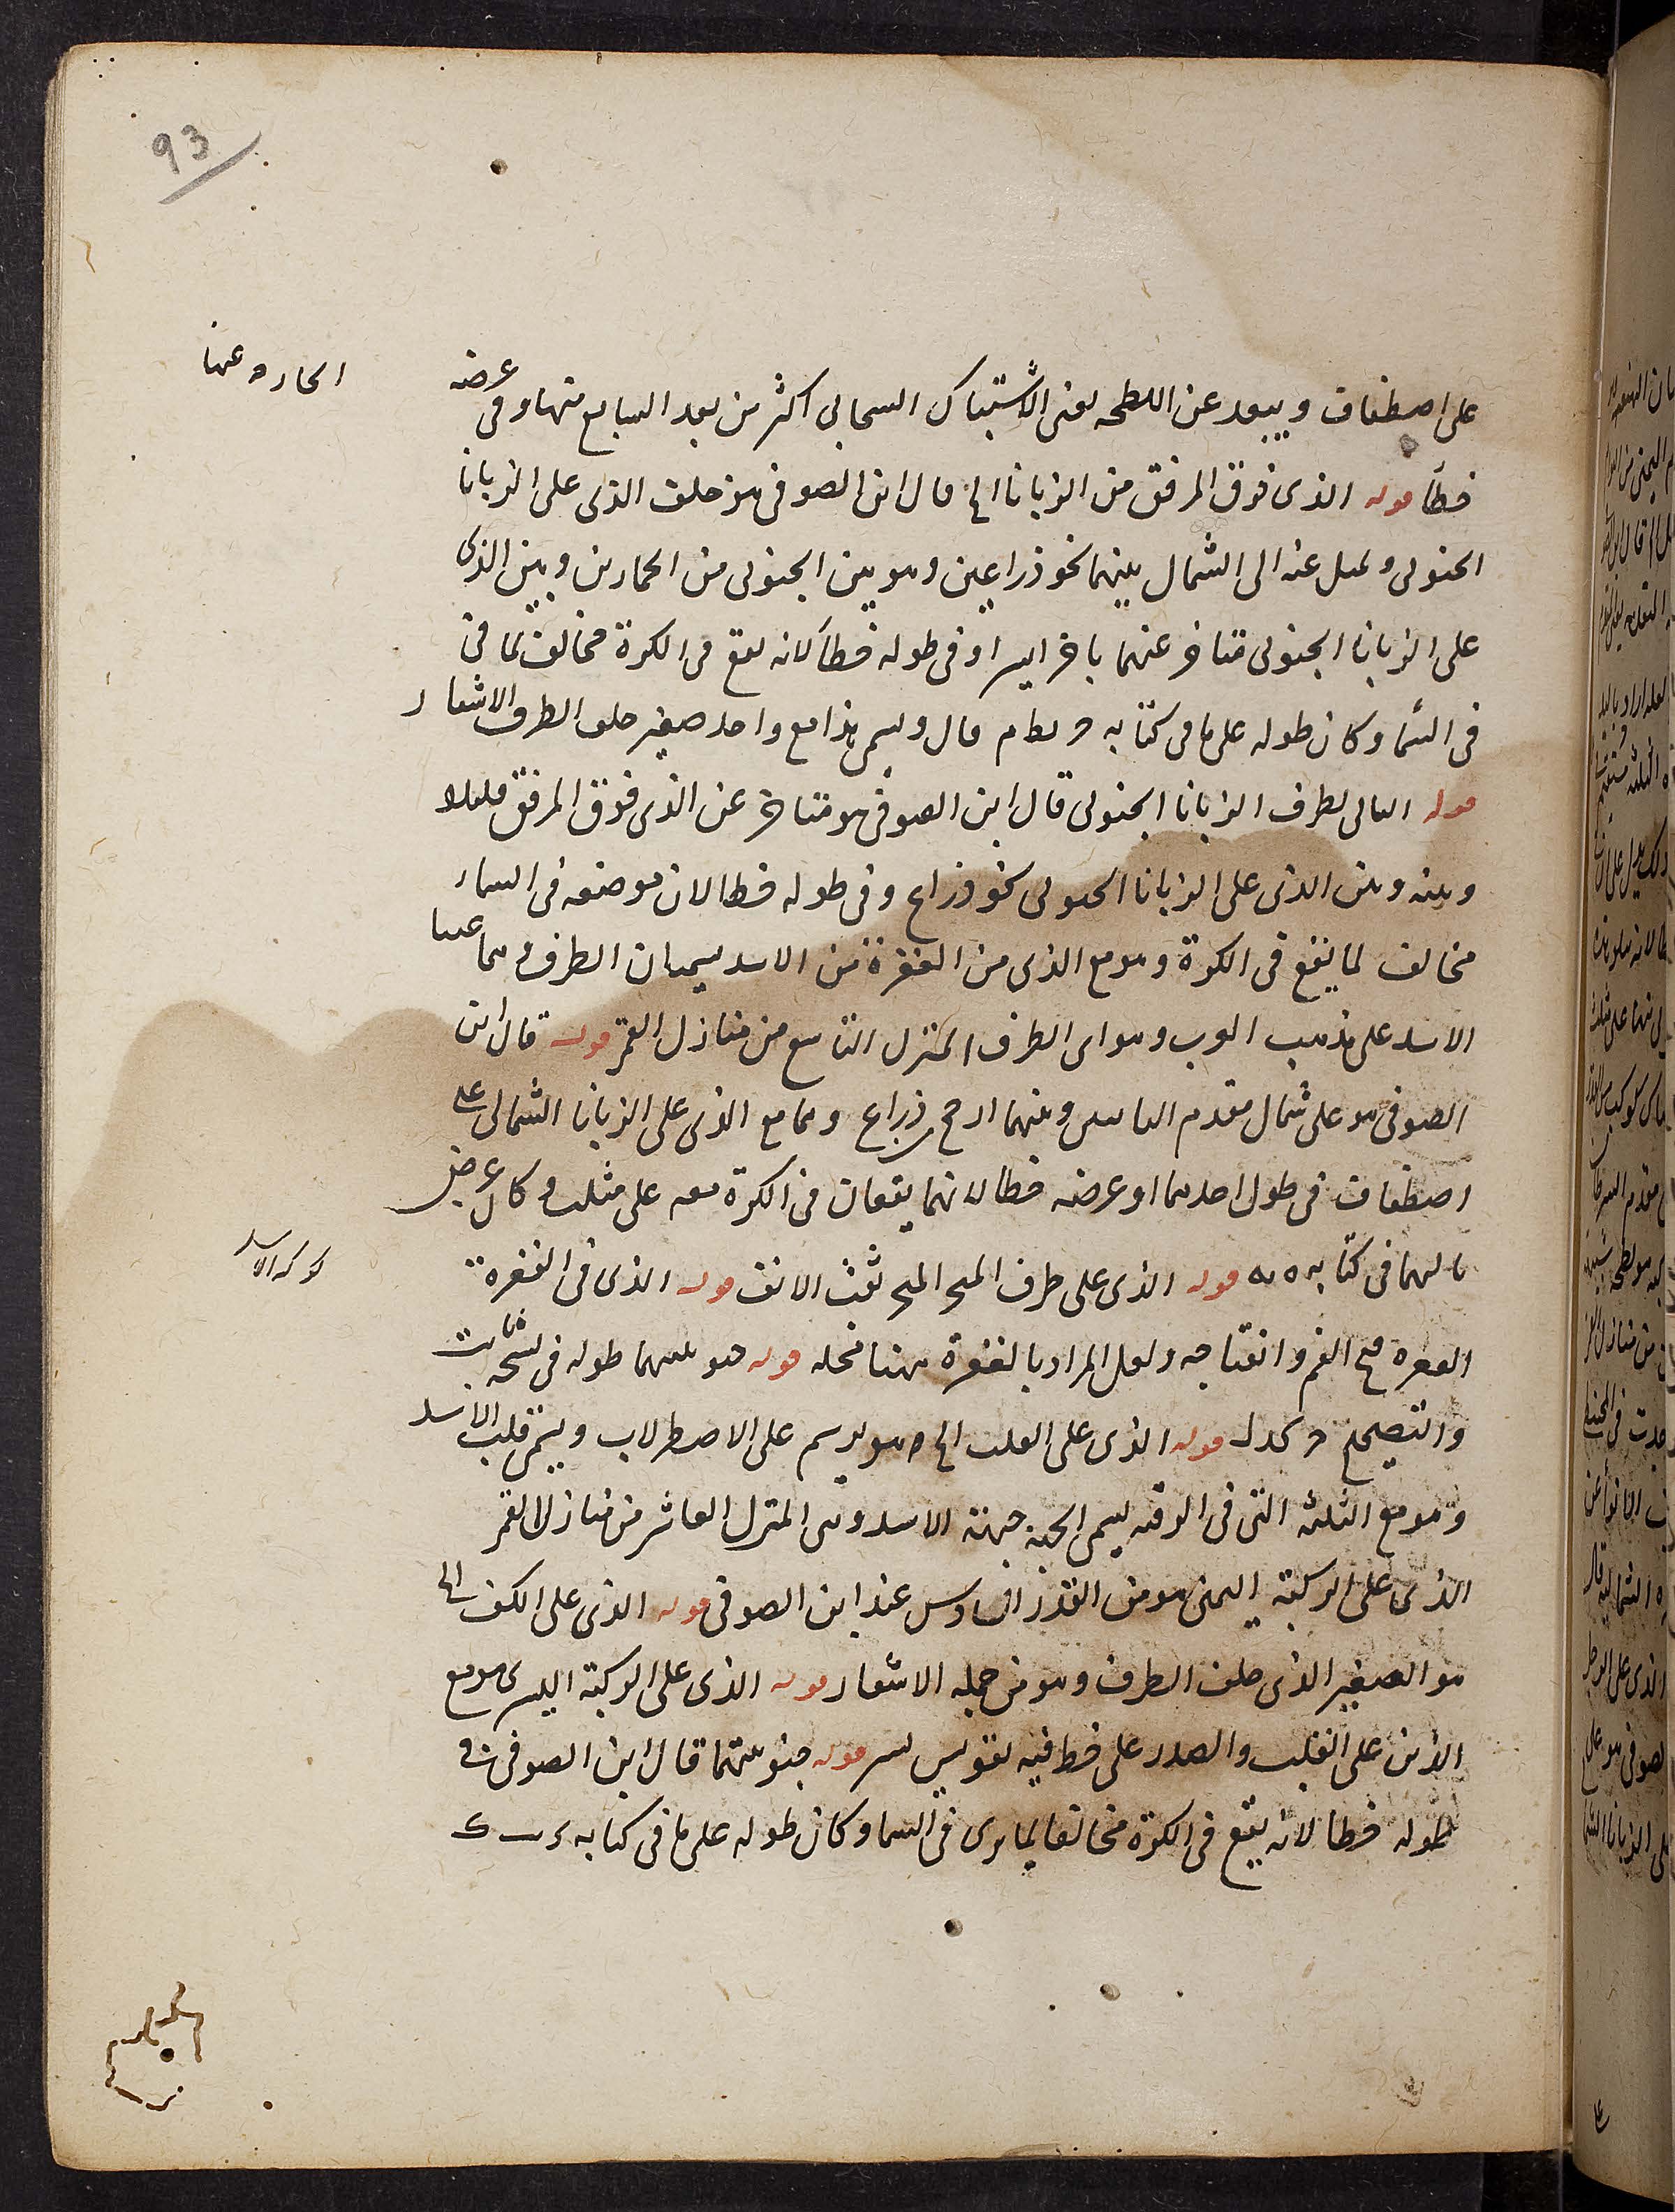 93
الخارجه عنها
على اصطفاف ويبعد عن اللطخه يعنى الاشتباك السحابى اكثر من بعد السابع منها وفى عرضه
خطأ قوله الذى فوق المرفق من الزبانا الخ قال ابن الصوفى هو خلف الذى على الزبانا
الجنوبى ويميل عنه الى الشمال بينهما نحو ذراعين وهو بين الجنوبى من الحمارين وبين الذى
على الزبانا الجنوبى متاخر عنهما تاخرا يسيرا وفى طوله خطأ لانه يقع فى الكرة مخالف لما فى
فى السما وكان طوله على ما فى كتابه قال ويسمى هذا مع واحد صغير خلف الطرف الاشفار
قوله التالى لطرف الزبانا الجنوبى قال ابن الصوفى هو متاخر عن الذى فوق المرفق قليلا
وبينه وبين الذى على الزبانا الجنوبى نحو ذراع وفى طوله خطا لان موضعه فى السماء
مخالف لما يقع فى الكرة وهو مع الذى من الفغرة من الاسد يسميان الطرف وهما عينا
الاسد على مذهب العرب وهو اى الطرف المنزل التاسع من منازل القمر قوله قال ابن
الصوفى هو على شمال مقدم وبينهما ارجح ذراع وهما مع الذى على الزبانا الشمالى على
اصطفاف فى طول احدهما او عرضه خطا لانهما يقعان فى الكرة معه على مثلث وكان عرض
كوكبه الاسد
تاليهما فى كتابه قوله الذى على طرف المنخر المنخر ثقب الانف قوله الذى فى الفغرة
الفغره فتح الفم وانفتاحه ولعل المراد بالفغرة ههنا محله قوله جنوبيهما طوله فى نسخه
والتصحيح قوله الذى على القلب الخ هو يرسم على الاصطرلاب ويسمى قلب الاسد
وهو مع الثلثة التى فى الرقبه يسمى الجبهة جبهة الاسد وهى المنزل العاشر من منازل القمر
الذى على الركبة اليمنى هو من القدر السادس عند ابن الصوفى قوله الذى على الكف الخ
هو الصغير الذى خلف الطرف وهو من جمله الاشفار قوله الذى على الركبة اليسرى هو مع
الذين على القلب والصدر على خط فيه تقويس يسير قوله جنوبيهما قال ابن الصوفى فى
طوله خطا لانه يقع فى الكرة مخالفا لما يرى فى السما وكان طوله على ما فى كتابه